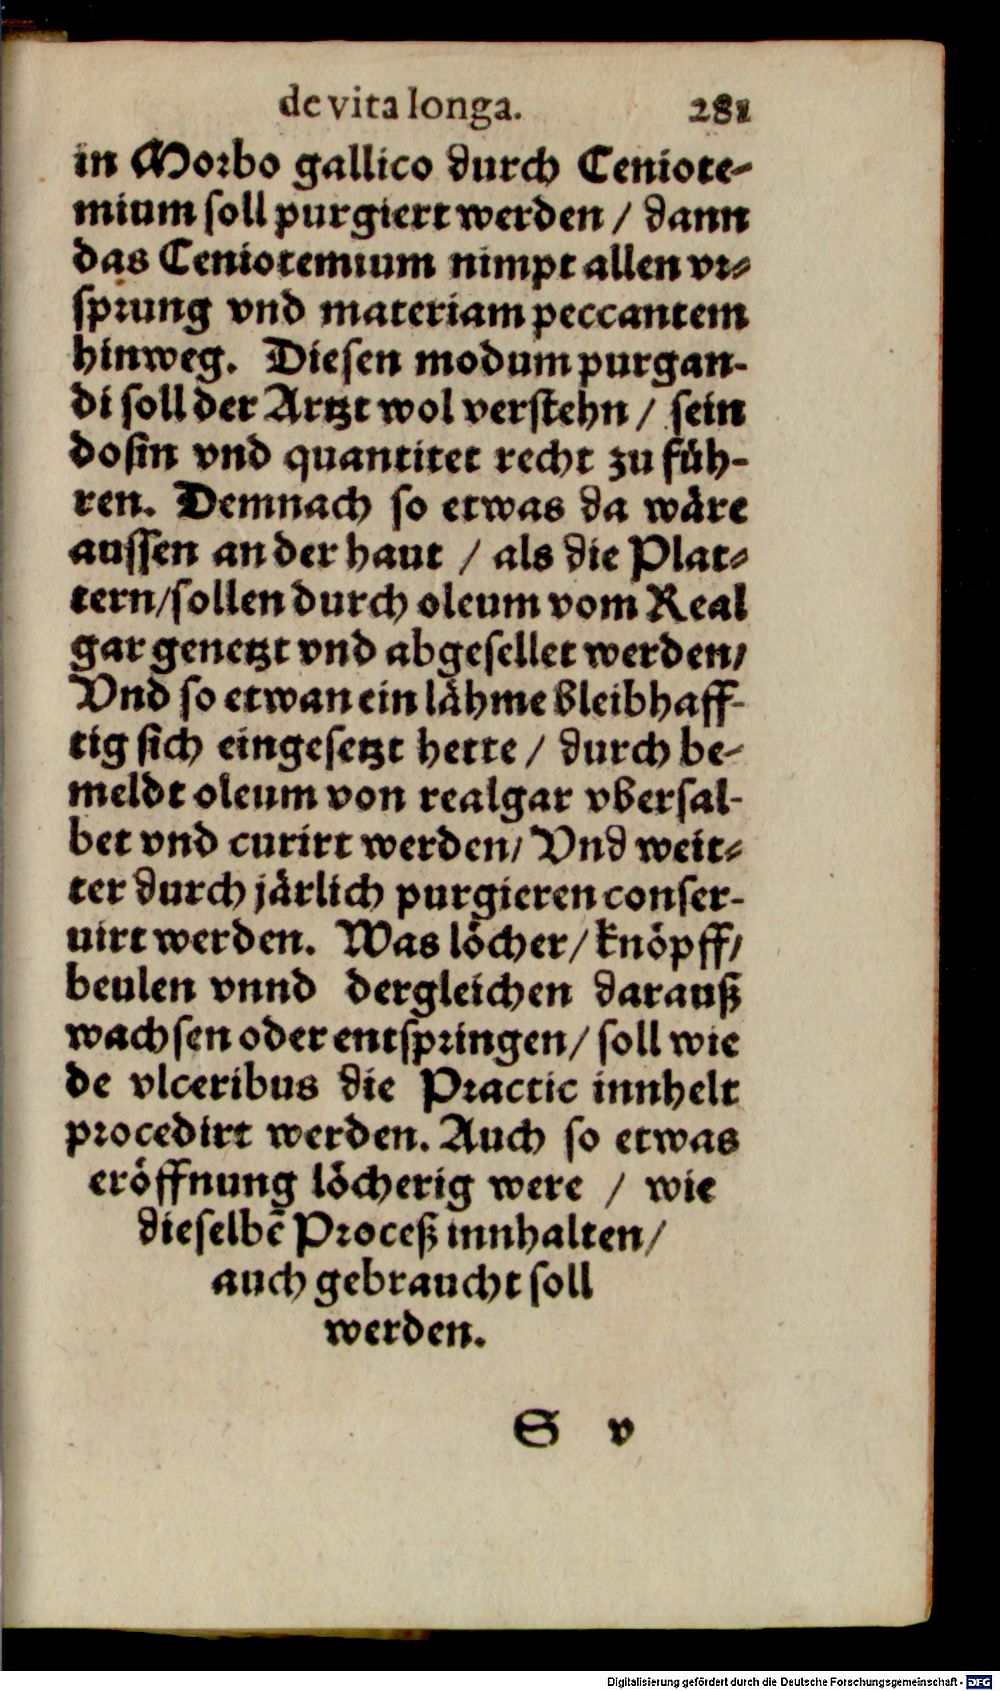 de vita longa. 281
in Morbo gallico durch Ceniote-
mium soll purgiert werden / dann
das Ceniotemium nimpt allen vr-
sprung vnd materiam peccantem
hinweg. Diesen modum purgan-
di soll der Artzt wol verstehn / sein
dosin vnd quantitet recht zu füh-
ren. Demnach so etwas da wäre
aussen an der haut / als die Plat-
tern/sollen durch oleum vom Real
gar genetzt vnd abgesellet werden/
Vnd so etwan ein lähme bleibhaff-
tig sich eingesetzt hette / durch be-
meldt oleum von realgar vbersal-
bet vnd curirt werden/ Vnd weit-
ter durch järlich purgieren conser-
uirt werden. Was löcher/ knöpff/
beulen vnnd dergleichen darauß
wachsen oder entspringen/ soll wie
de vlceribus die Practic innhelt
procedirt werden. Auch so etwas
eröffnung löcherig were / wie
dieselbē Proceß innhalten/
auch gebraucht soll
werden.
S v
Digitalisierung gefördert durch die Deutsche Forschungsgemeinschaft - DFG